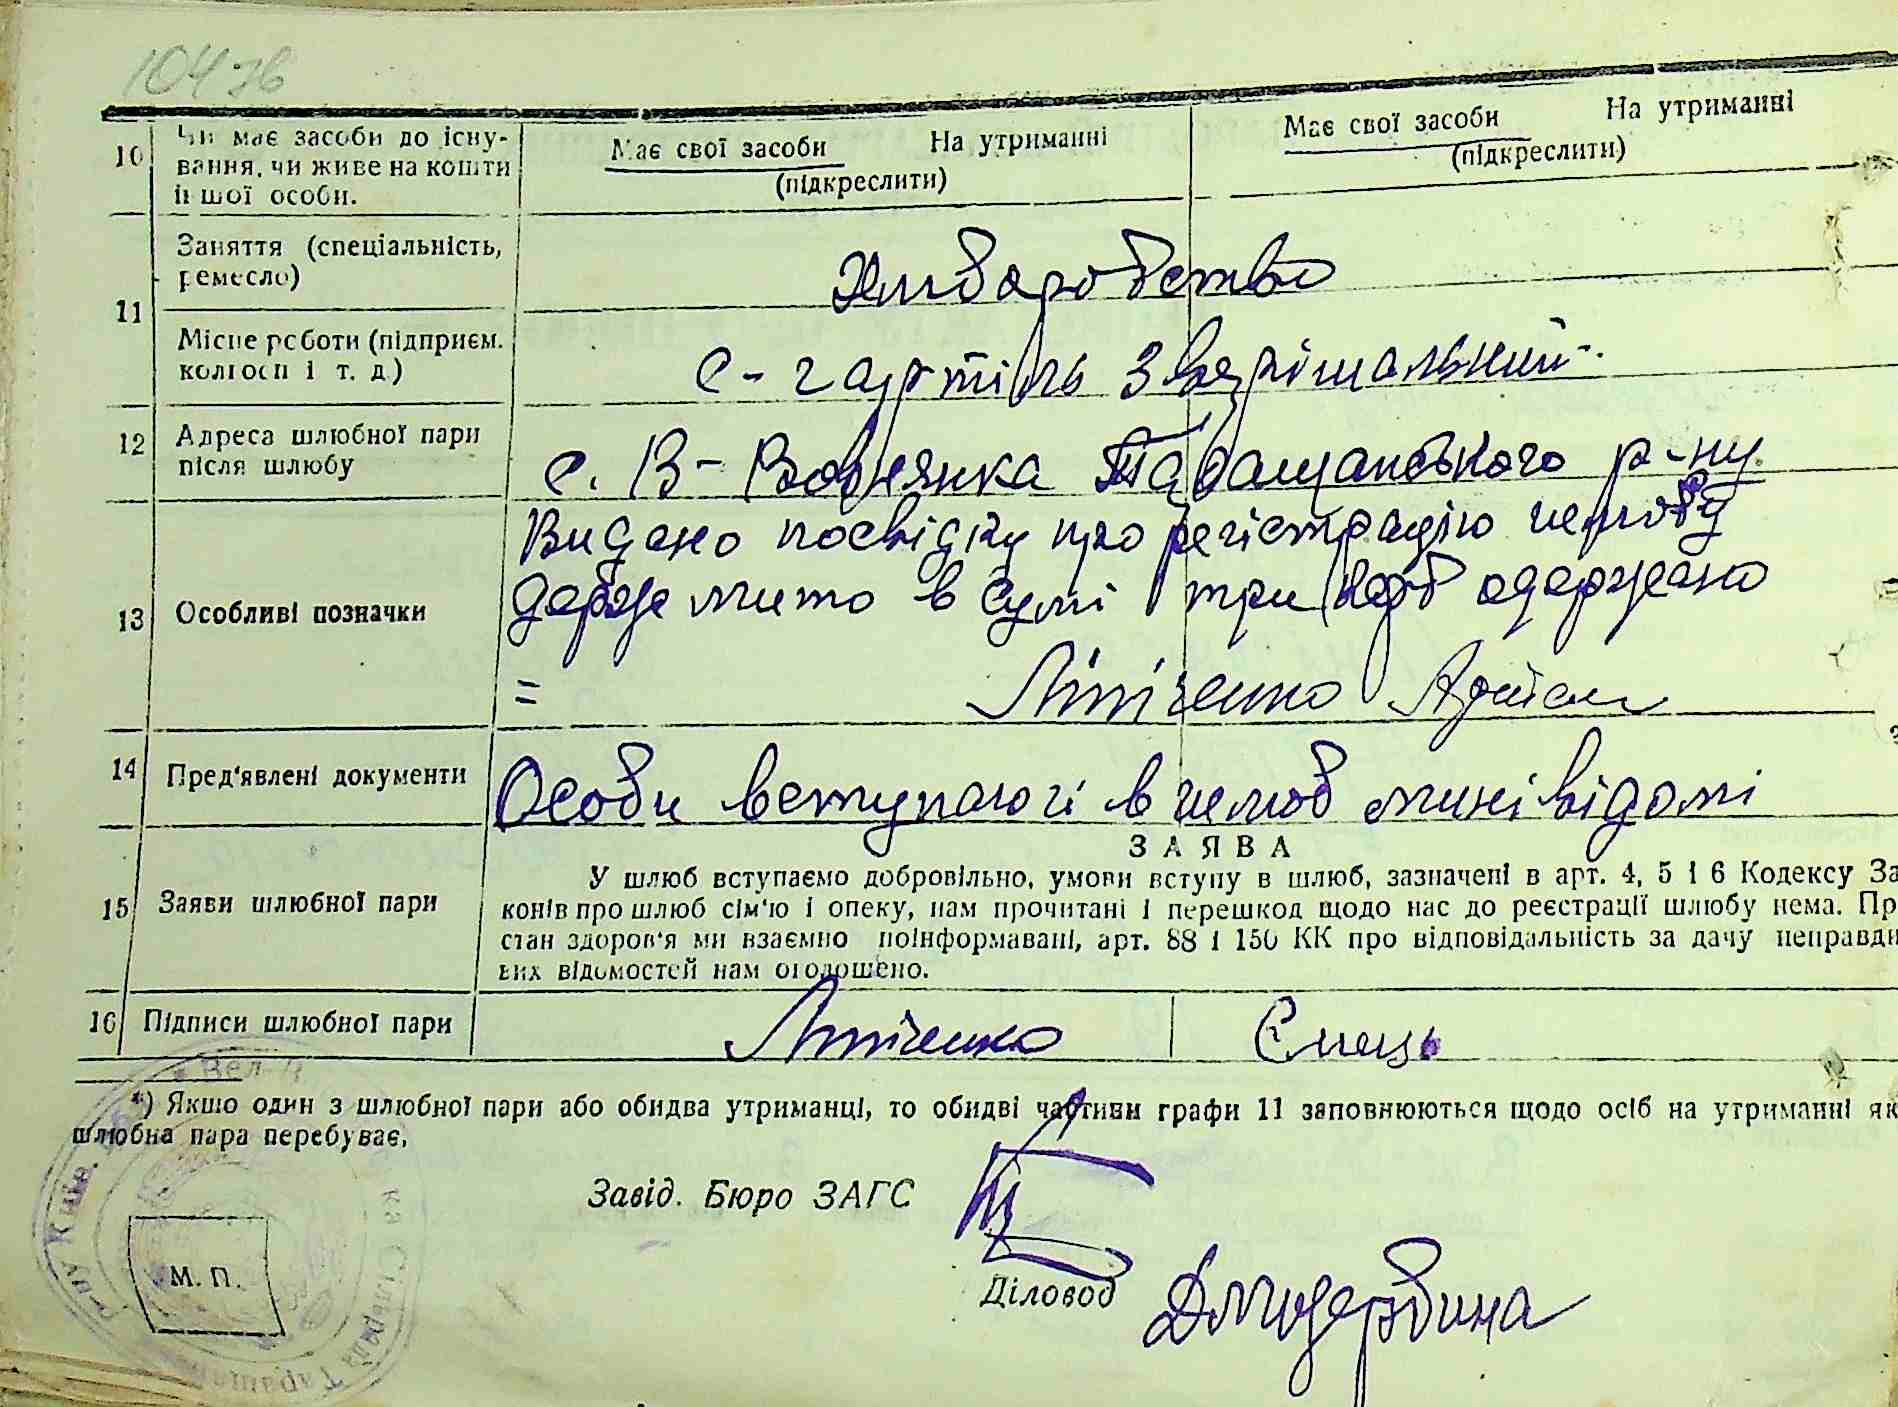 104 зв
10 Чи має засоби до існу-
вання, чи живе на кошти
іншої особи.
Має свої засоби На утриманні
(підкреслити)
Має свої засоби На утриманні
(підкреслити)
11 Заняття (спеціальність,
ремесло)
Хліборобство
Місце роботи (підприєм.
колгосп і т. д.)
С-г артіль Звярішальний
12 Адреса шлюбної пари
після шлюбу
с. В-Вовнянка Таращанського р-ну
13 Особливі позначки
Видано посвідку про регістрацію шлюбу
держ мито в сумі три карб одержано
= Літвіченко Артем
14 Пред'явлені документи
Особи вступаючі в шлюб мині відомі
15 Заяви шлюбної пари
ЗАЯВА
У шлюб вступаємо добровільно, умови вступу в шлюб, зазначені в арт. 4, 5 і 6 Кодексу За
конів про шлюб сім'ю і опеку, нам прочитані і перешкод щодо нас до реєстрації шлюбу нема. Пр
стан здоров'я ми взаємно поінформавані, арт. 88 і 150 КК про відповідальність за дачу неправди
вих відомостей нам оголошено.
16 Підписи шлюбної пари
Ємець
*) Якшо один з шлюбної пари або обидва утриманці, то обидві частини графи 11 заповнюються щодо осіб на утриманні як
шлюбна пара перебуває.
Завід. Бюро ЗАГС
М. П.
Діловод